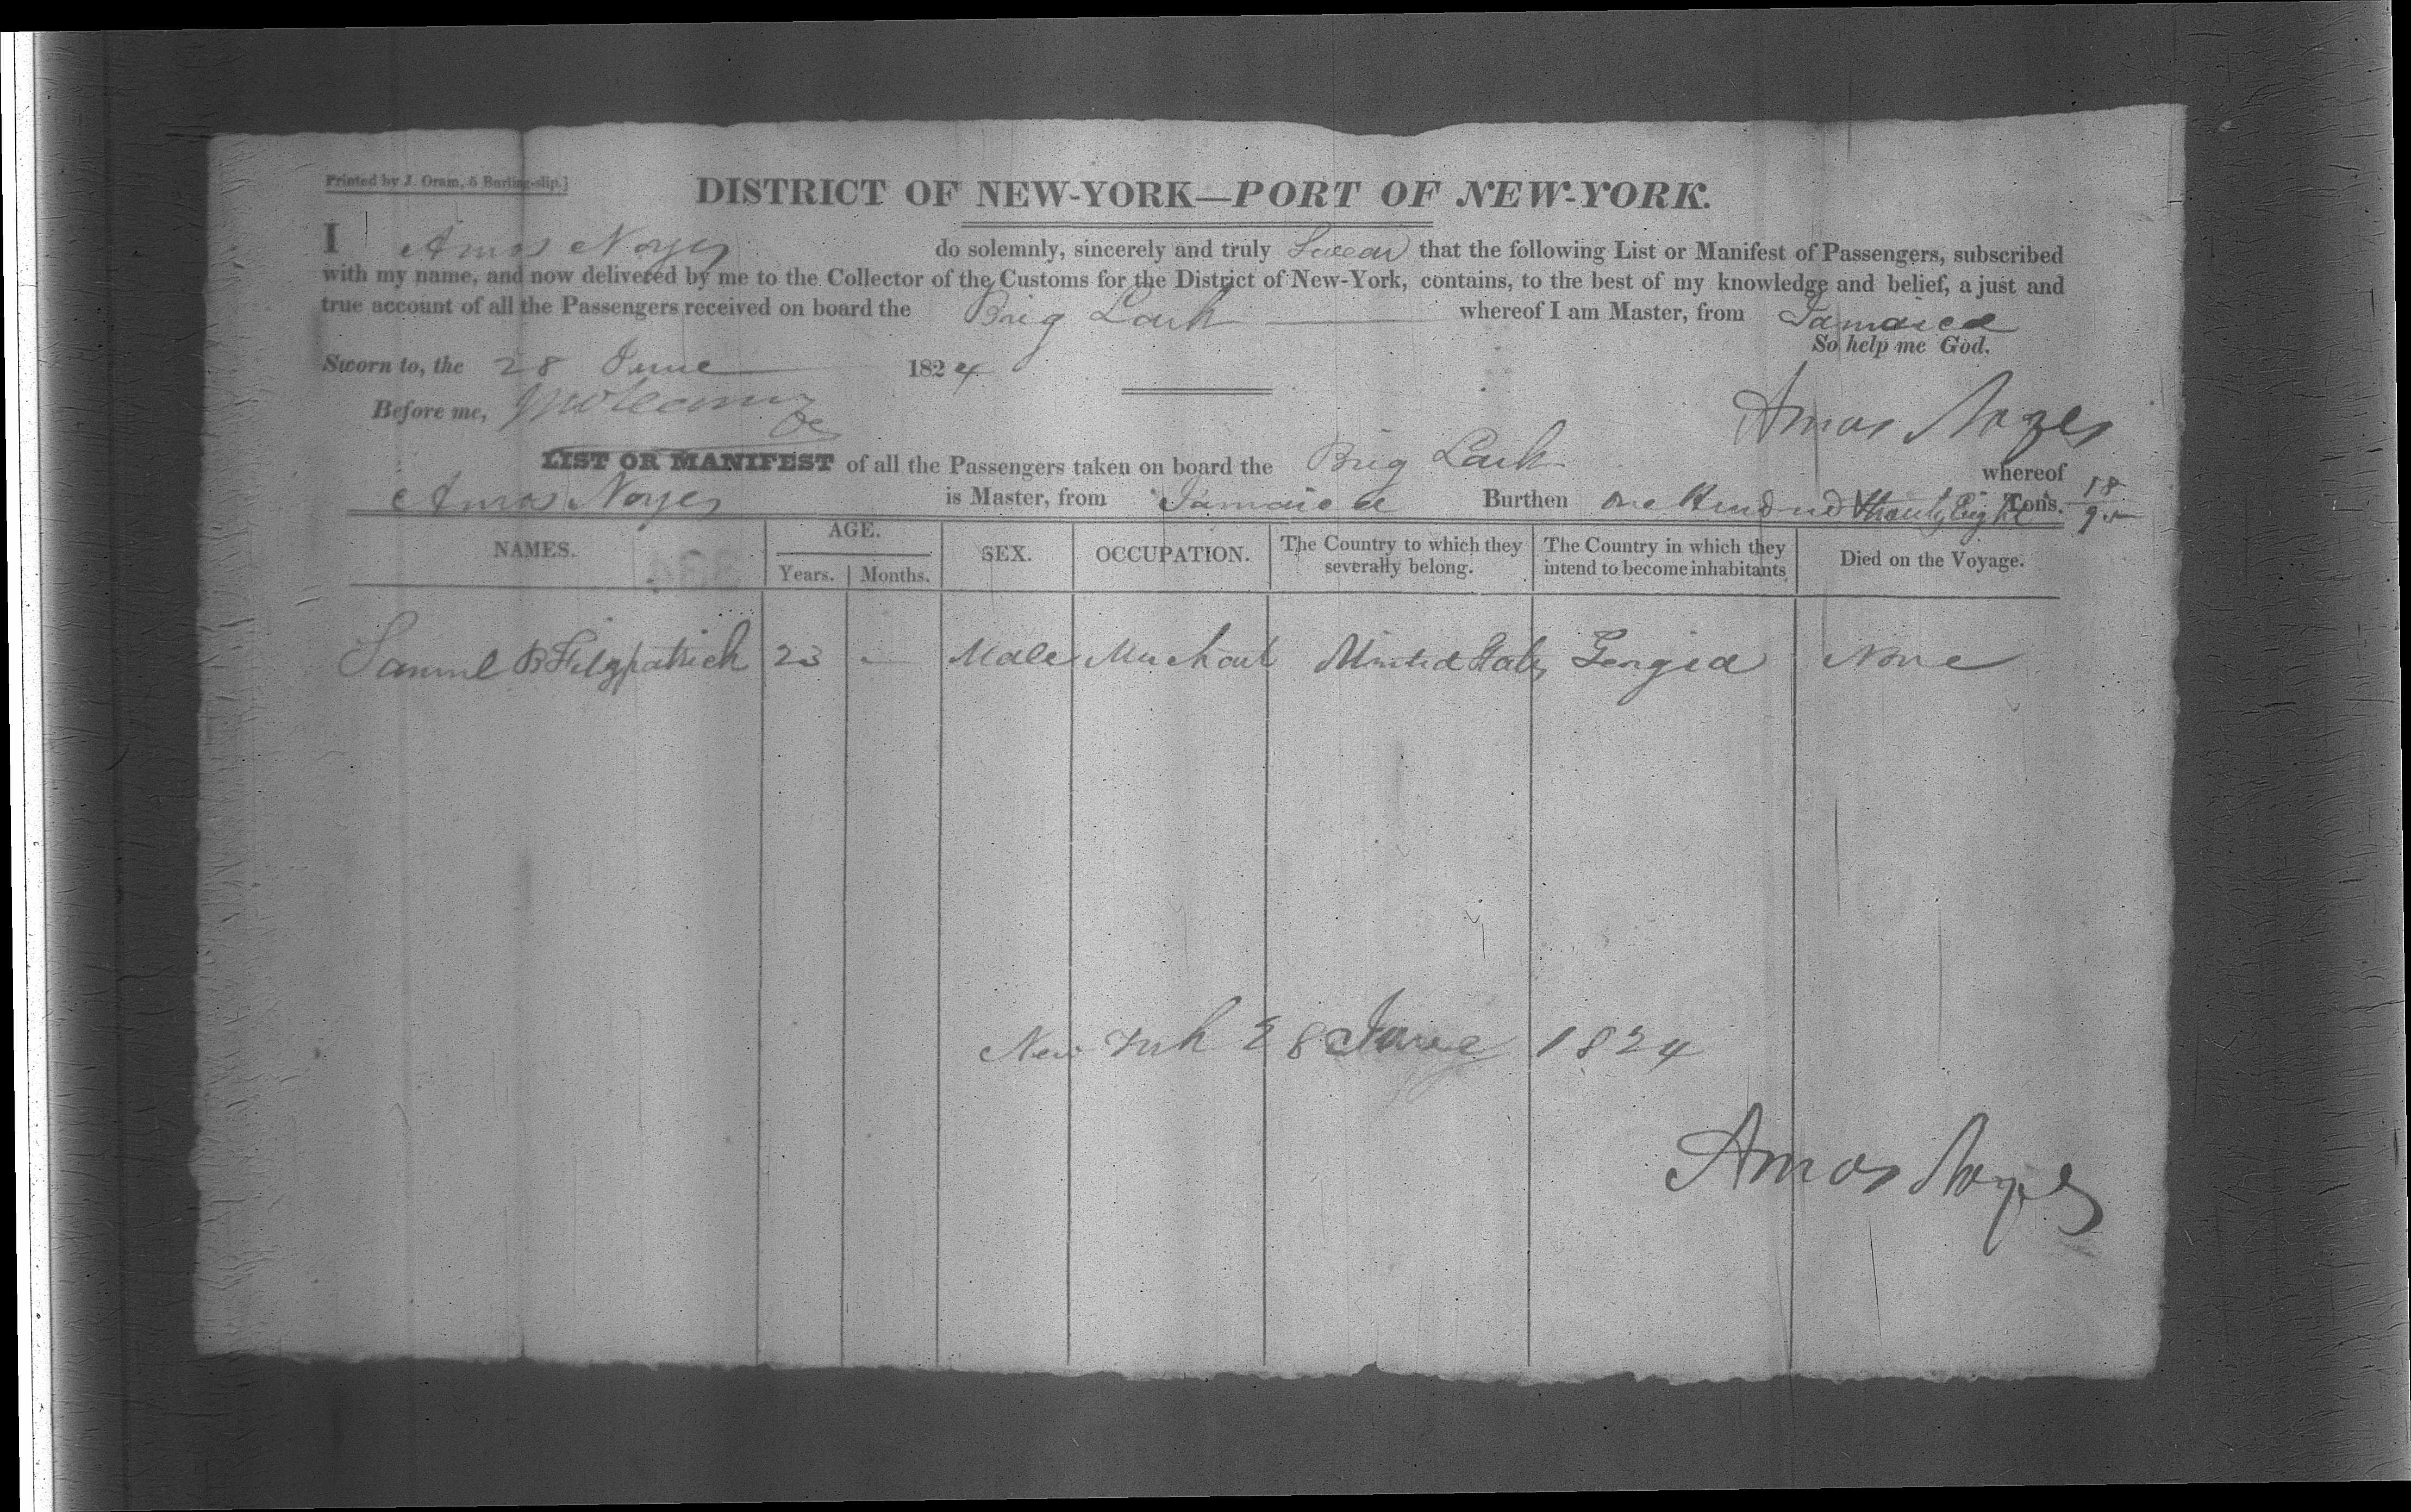 Printed by J. Oram, 5 Burling-slip.]
DISTRICT OF NEW-YORK—PORT OF NEW-YORK.
I Amos Noyes do solemnly, sincerely and truly Swear that the following List or Manifest of Passengers, subscribed
with my name, and now delivered by me to the Collector of the Customs for the District of New-York, contains, to the best of my knowledge and belief, a just and
true account of all the Passengers received on board the Brig Lark whereof I am Master, from Jamaica
So help me God.
Sworn to, the 28 June 1824
Before me,
Amos Noyes
LIST OR MANIFEST of all the Passengers taken on board the Brig Lark whereof
Amos Noyes is Master, from Jamaica Burthen One Hundred Eight Tons. 18/95
NAMES. AGE. SEX. OCCUPATION. The Country to which they severally belong. The Country in which they intend to become inhabitants Died on the Voyage.
Years. Months.
Samuel B Fitzpatrick 23 - Male Merchant United States Georgia None
New York 28 June 1824
Amos Noyes